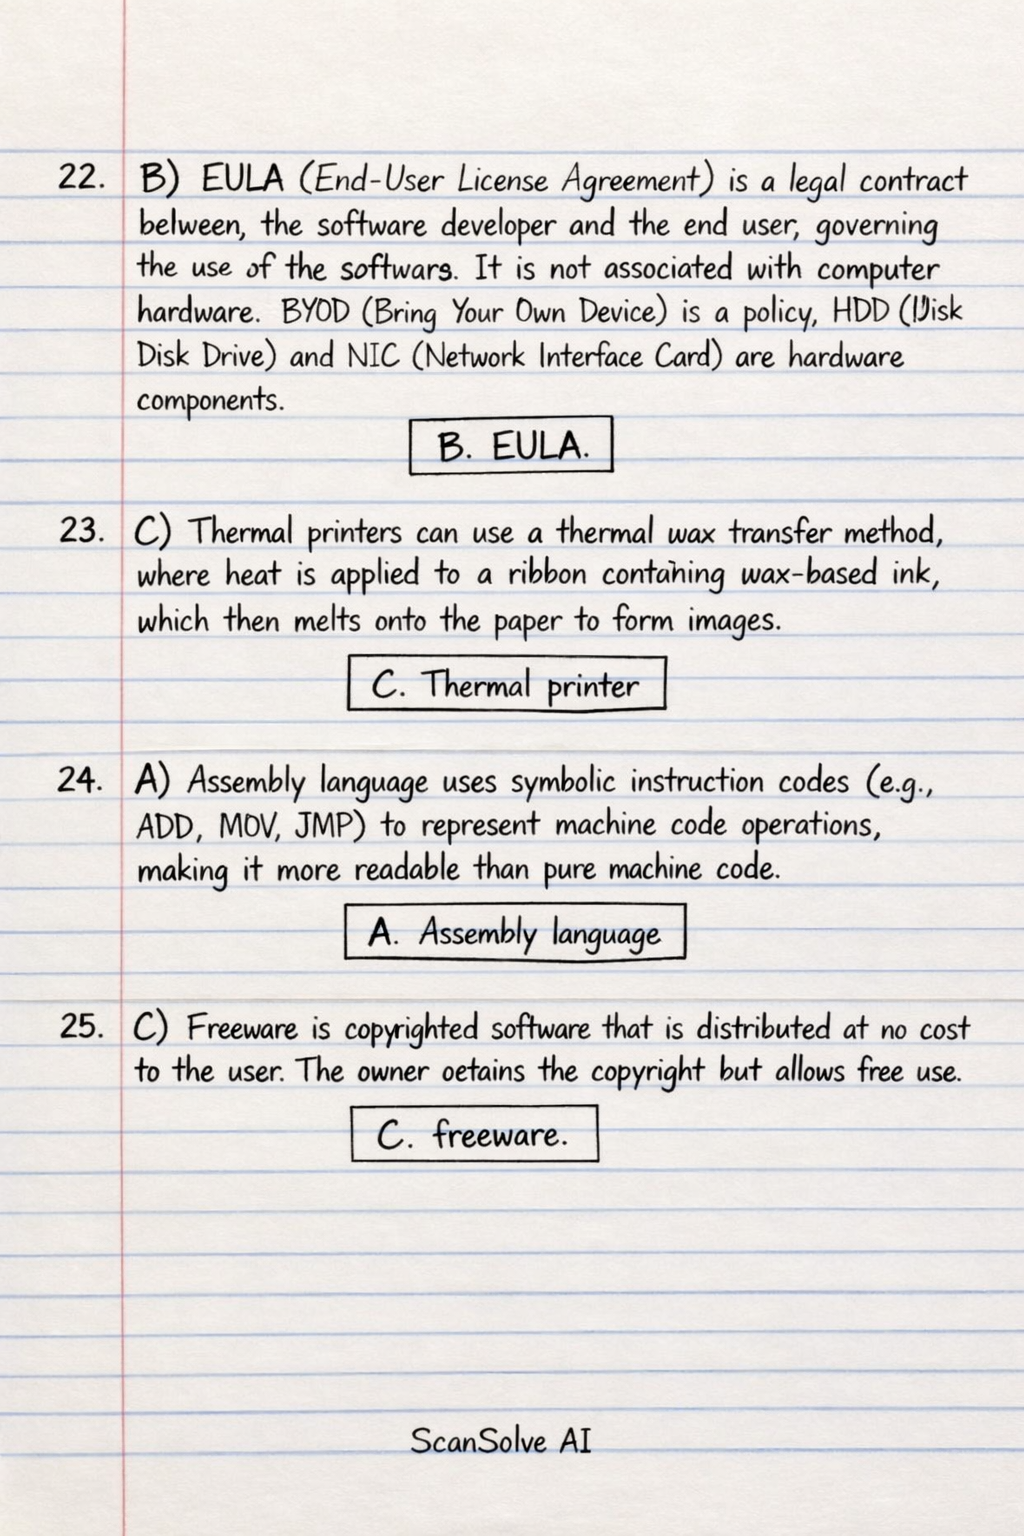 22. B) EULA (End-User License Agreement) is a legal contract
between, the software developer and the end user, governing
the use of the softwars. It is not associated with computer
hardware. BYOD (Bring Your Own Device) is a policy, HDD (Disk
Disk Drive) and NIC (Network Interface Card) are hardware
components.
B. EULA.
23. C) Thermal printers can use a thermal wax transfer method,
where heat is applied to a ribbon containing wax-based ink,
which then melts onto the paper to form images.
C. Thermal printer
24. A) Assembly language uses symbolic instruction codes (e.g.,
ADD, MOV, JMP) to represent machine code operations,
making it more readable than pure machine code.
A. Assembly language
25. C) Freeware is copyrighted software that is distributed at no cost
to the user. The owner oetains the copyright but allows free use.
C. freeware.
ScanSolve AI